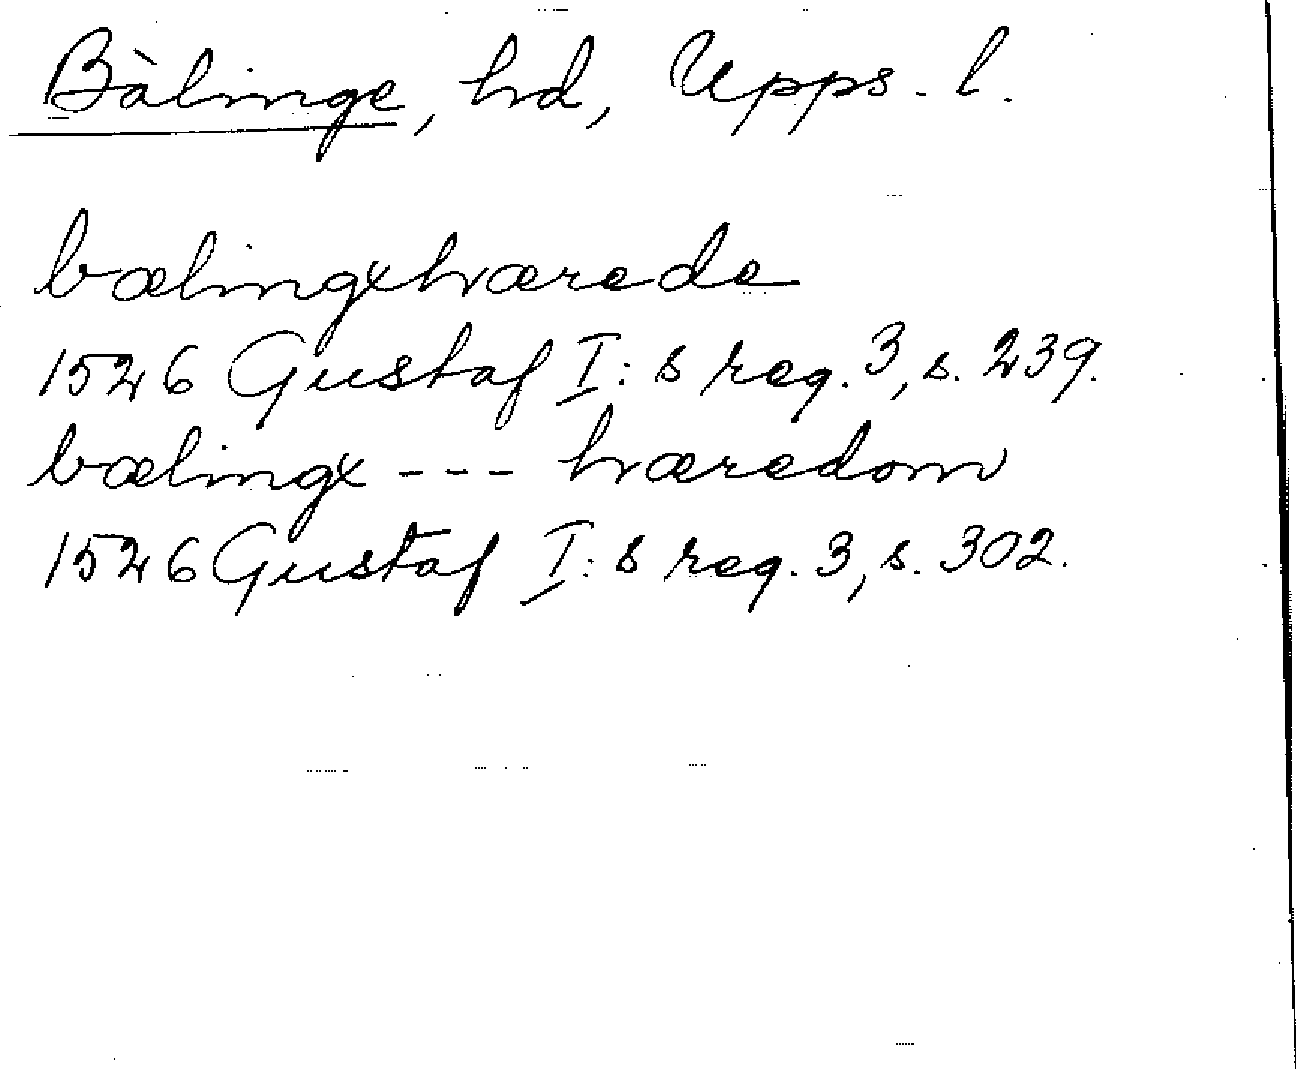 Bälinge, hd, Upps. l.
bælingxhærede
1526 Gustaf I:s reg. 3, s. 239.
bælingx --- hæredom
1526 Gustaf I:s reg. 3, s. 302.